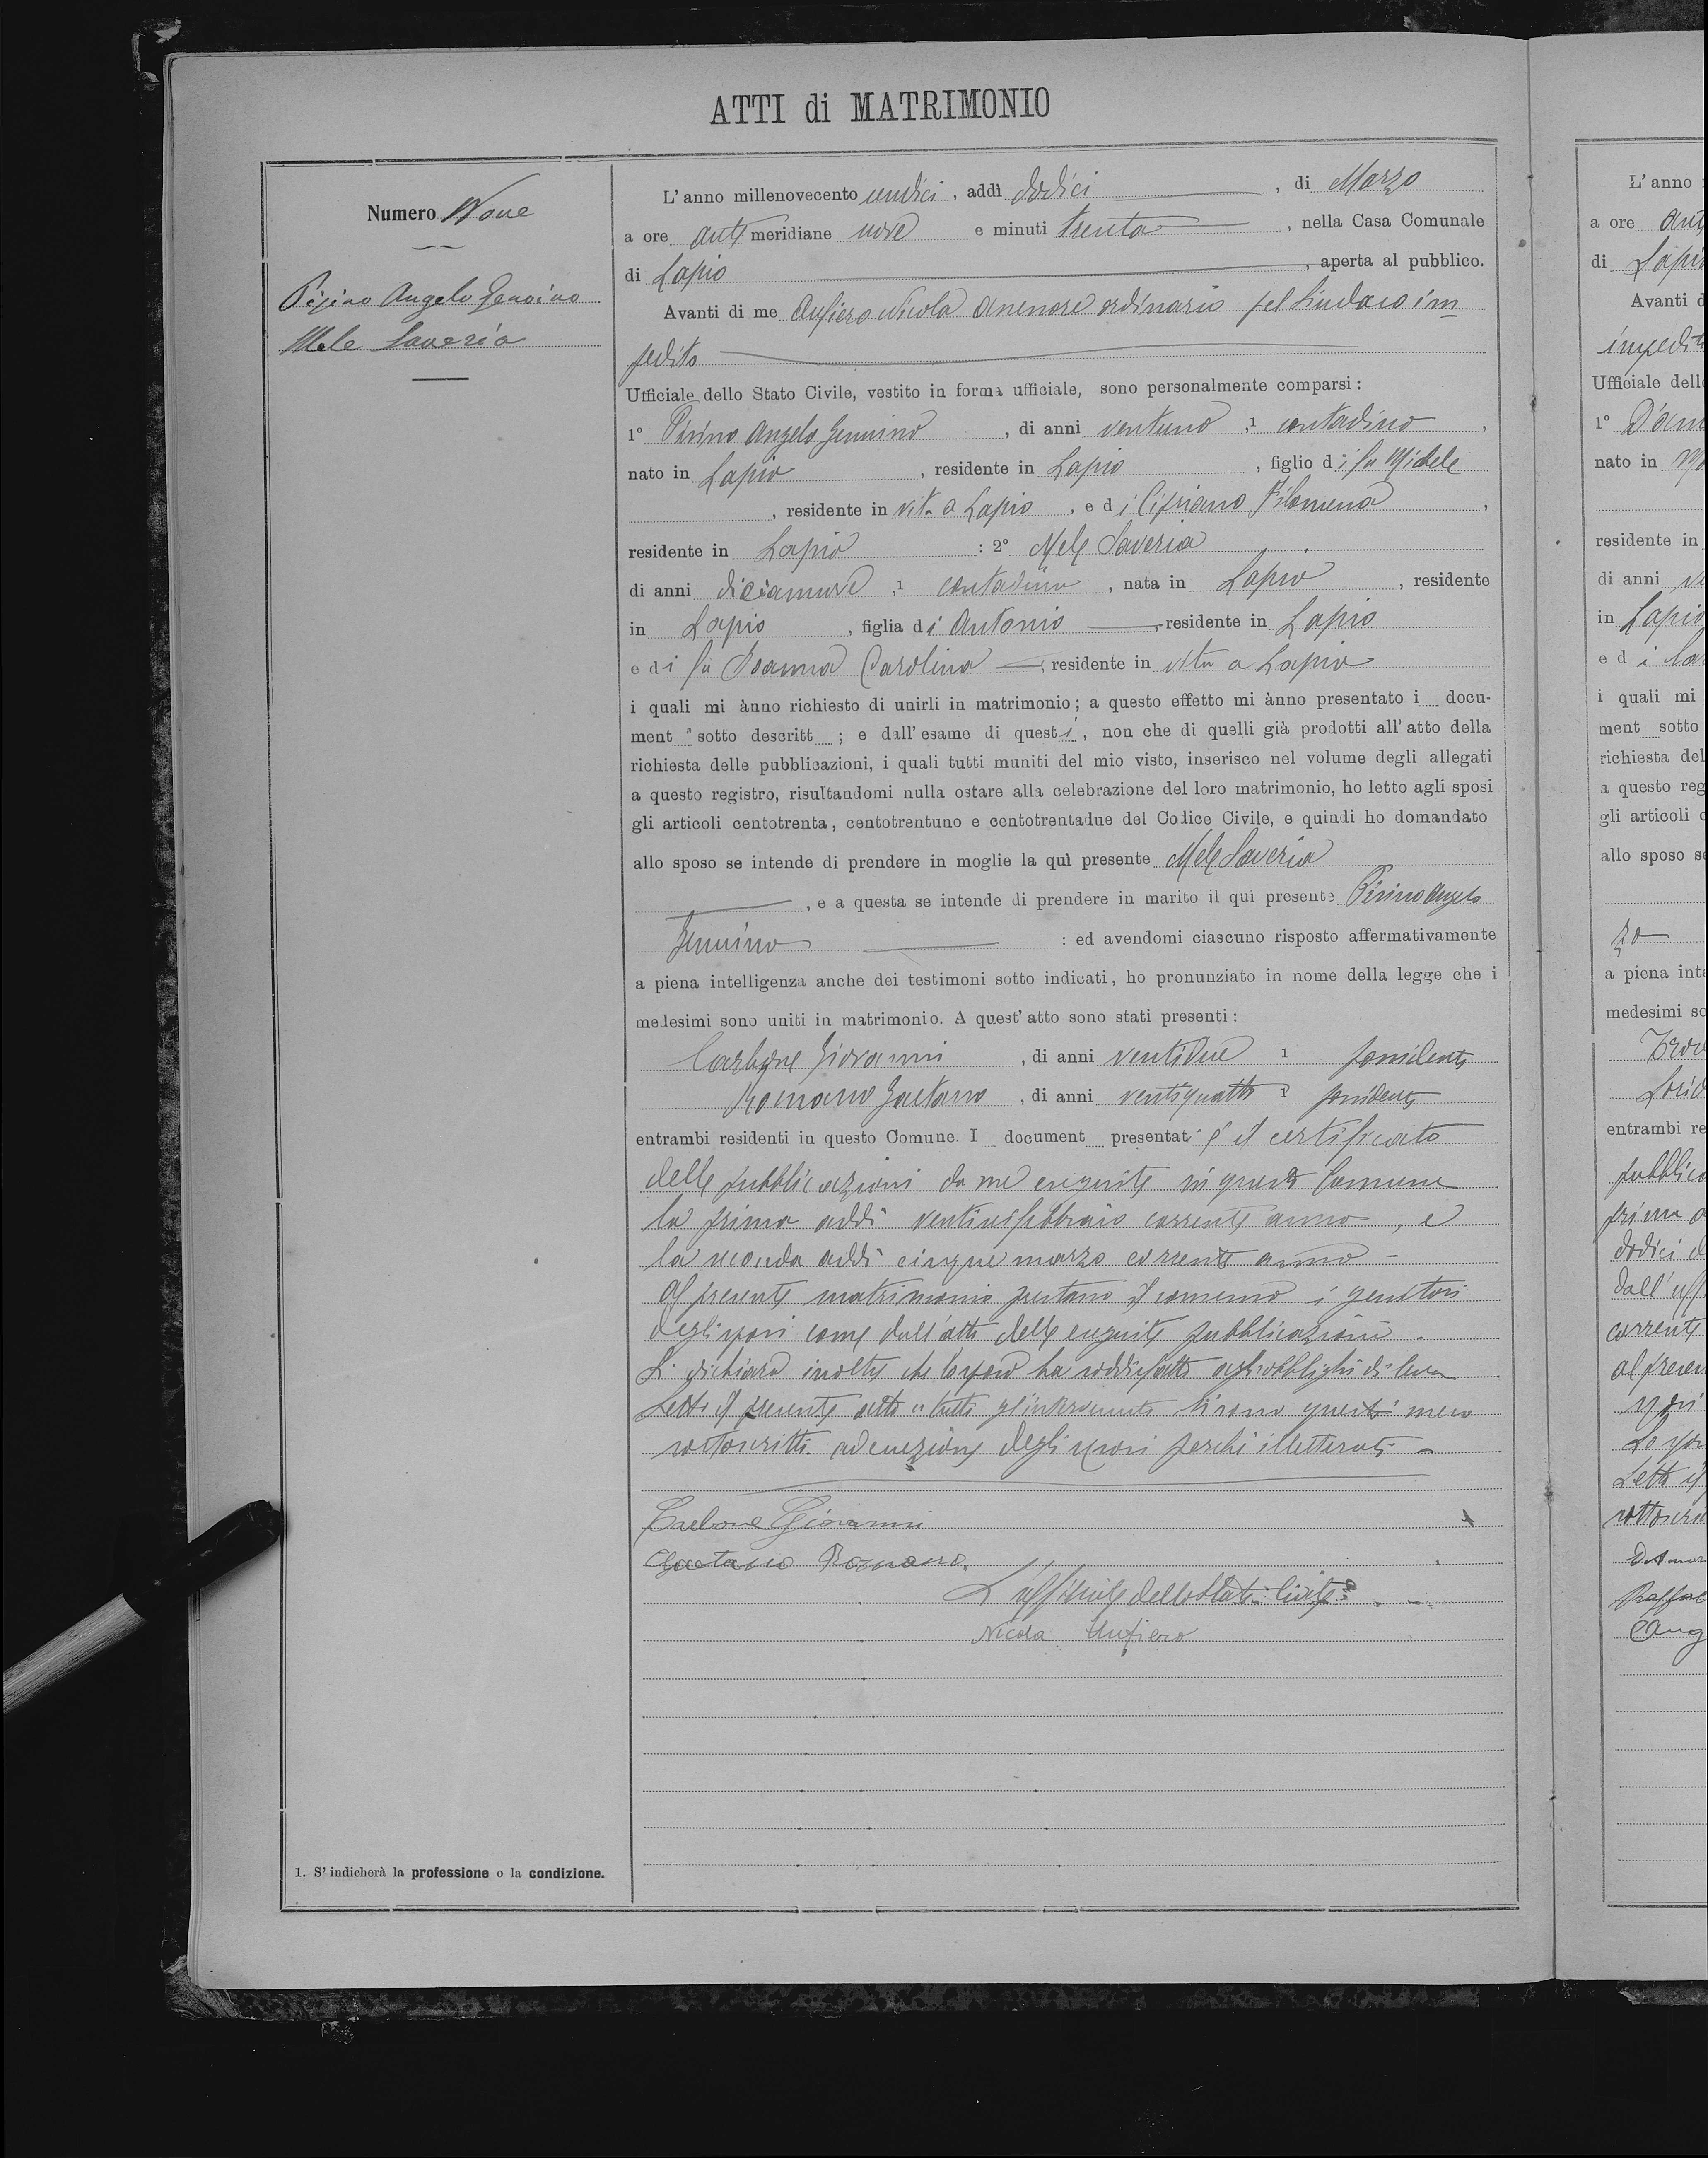 ATTI di MATRIMONIO
Numero Nove
Pisino Angelo Genoino
Mele Saveria
1. S'indicherà la professione o la condizione.
L'anno millenovecento undici, addì dodici, di Marzo
a ore ante meridiane nove e minuti trenta, nella Casa Comunale
di Lapio, aperta al pubblico.
Avanti di me Aufiero Nicola assessore ordinario pel Sindaco im
pedito
Ufficiale dello Stato Civile, vestito in forma ufficiale, sono personalmente comparsi:
1º Pisino Angelo Genuino, di anni ventuno, 1 contadino,
nato in Lapio, residente in Lapio, figlio di fu Michele
, residente in vita a Lapio, e di Cipriano Filomena,
residente in Lapio : 2º Mele Saveria
di anni diciannove, 1 contadina, nata in Lapio, residente
in Lapio, figlia di Antonio, residente in Lapio
e di fu Ioanna Carolina, residente in vita a Lapio
i quali mi ànno richiesto di unirli in matrimonio; a questo effetto mi ànno presentato i docu-
ment sotto descritt ; e dall'esame di questi, non che di quelli già prodotti all'atto della
richiesta delle pubblicazioni, i quali tutti muniti del mio visto, inserisco nel volume degli allegati
a questo registro, risultandomi nulla ostare alla celebrazione del loro matrimonio, ho letto agli sposi
gli articoli centotrenta, centotrentuno e centotrentadue del Codice Civile, e quindi ho domandato
allo sposo se intende di prendere in moglie la quì presente Mele Saveria
, e a questa se intende di prendere in marito il quì presente Pisino Angelo
Genuino : ed avendomi ciascuno risposto affermativamente
a piena intelligenza anche dei testimoni sotto indicati, ho pronunziato in nome della legge che i
medesimi sono uniti in matrimonio. A quest'atto sono stati presenti:
Carbone Giovanni, di anni ventidue 1 possidente
Romano Gaetano, di anni ventiquattro 1 possidente
entrambi residenti in questo Comune. I document presentati è il certificato
delle pubblicazioni da me eseguite in questo Comune
la prima addì ventisei febbraio corrente anno, e
la seconda addì cinque marzo corrente anno -
Al presente matrimonio prestano il consenso i genitori
degli sposi come dall'atto delle eseguite pubblicazioni.
Si dichiara inoltre che lo sposo ha soddisfatto agli obblighi di leva
Letto il presente atto a tutti gl'intervenuti si sono questi meco
sottoscritti ad eccezione degli sposi perché illetterati -
Carbone Giovanni
Gaetano Romano.
L'uffiziale dello Stato Civile
Nicola Aufiero
L'anno
a ore
di
Avanti
Ufficiale
1º
nato in
residente in
di anni
in Lapio
e d i
i quali mi
ment sotto
richiesta
a questo
gli articoli
allo sposo
zo
a piena
medesimi
entrambi
dodici
corrente